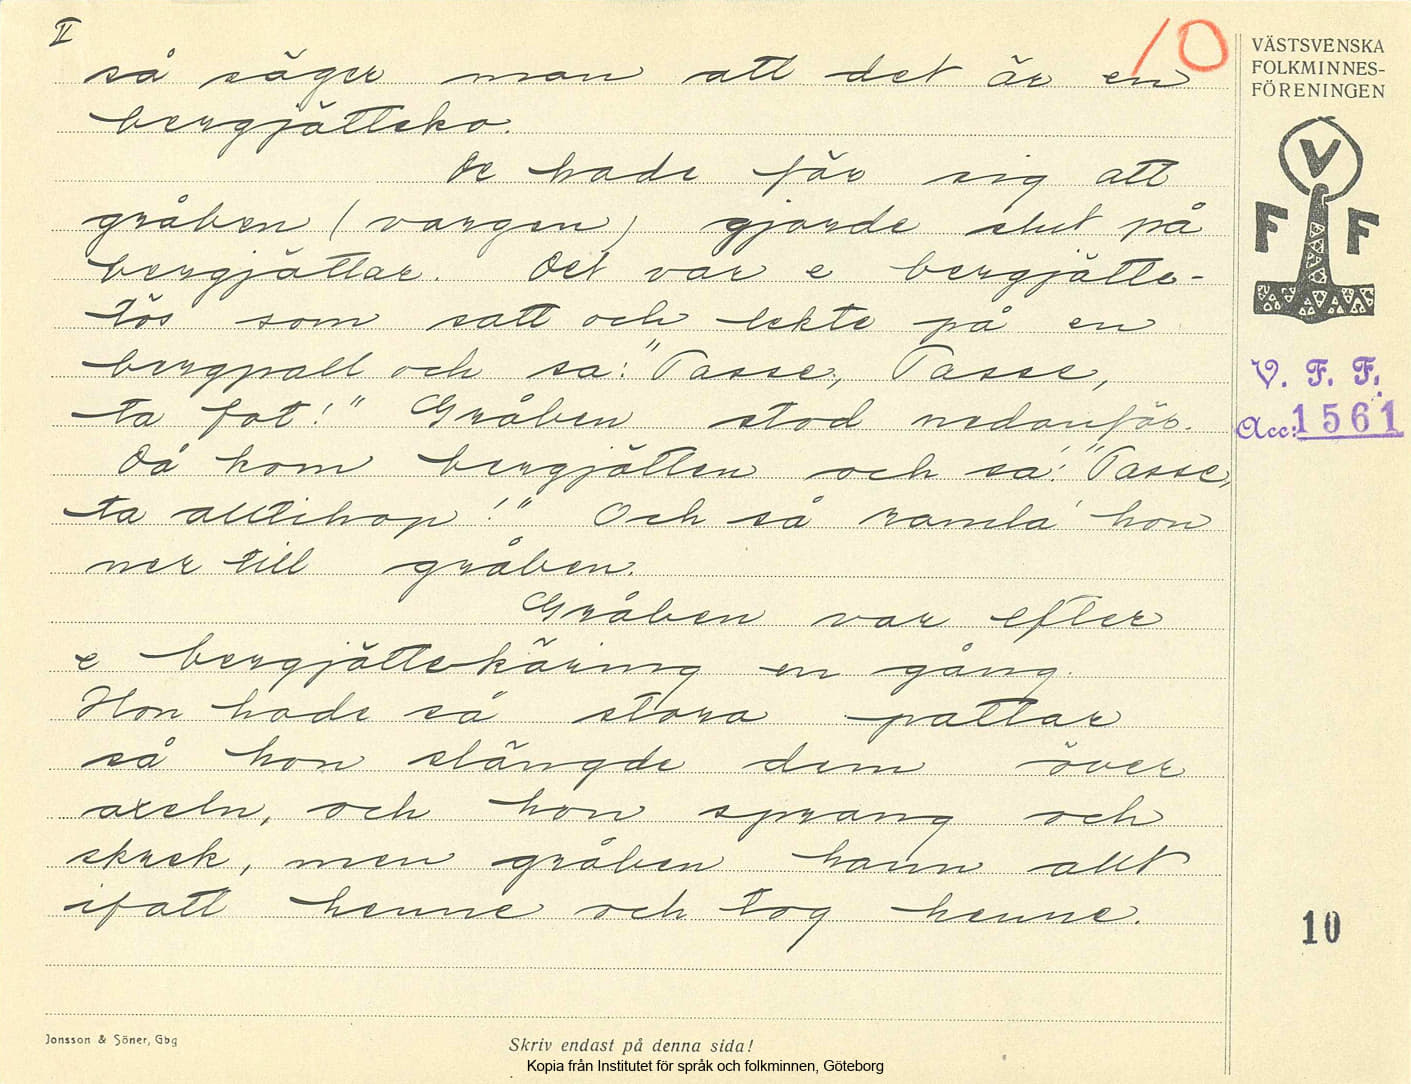 II
10
så säger man att det är en
bergjätteko.
De hade för sig att
gråben (vargen) gjorde slut på
bergjättar. Det var e bergjätte-
tös som satt och lekte på en
bergpall och sa: "Tasse, Tasse,
ta fot!" Gråben stod nedanför.
Då kom bergjätten och sa: "Tasse,
ta alltihop!" Och så ramla' hon
ner till gråben.
Gråben var efter
e bergjättekäring en gång.
Hon hade så stora pattar
så hon slängde dem över
axeln, och hon sprang och
skrek, men gråben hann allt
ifatt henne och tog henne.
VÄSTSVENSKA
FOLKMINNES-
FÖRENINGEN
V
F F
V. F. F.
Acc: 1561
10
Jonsson & Söner, Gbg
Skriv endast på denna sida!
Kopia från Institutet för språk och folkminnen, Göteborg